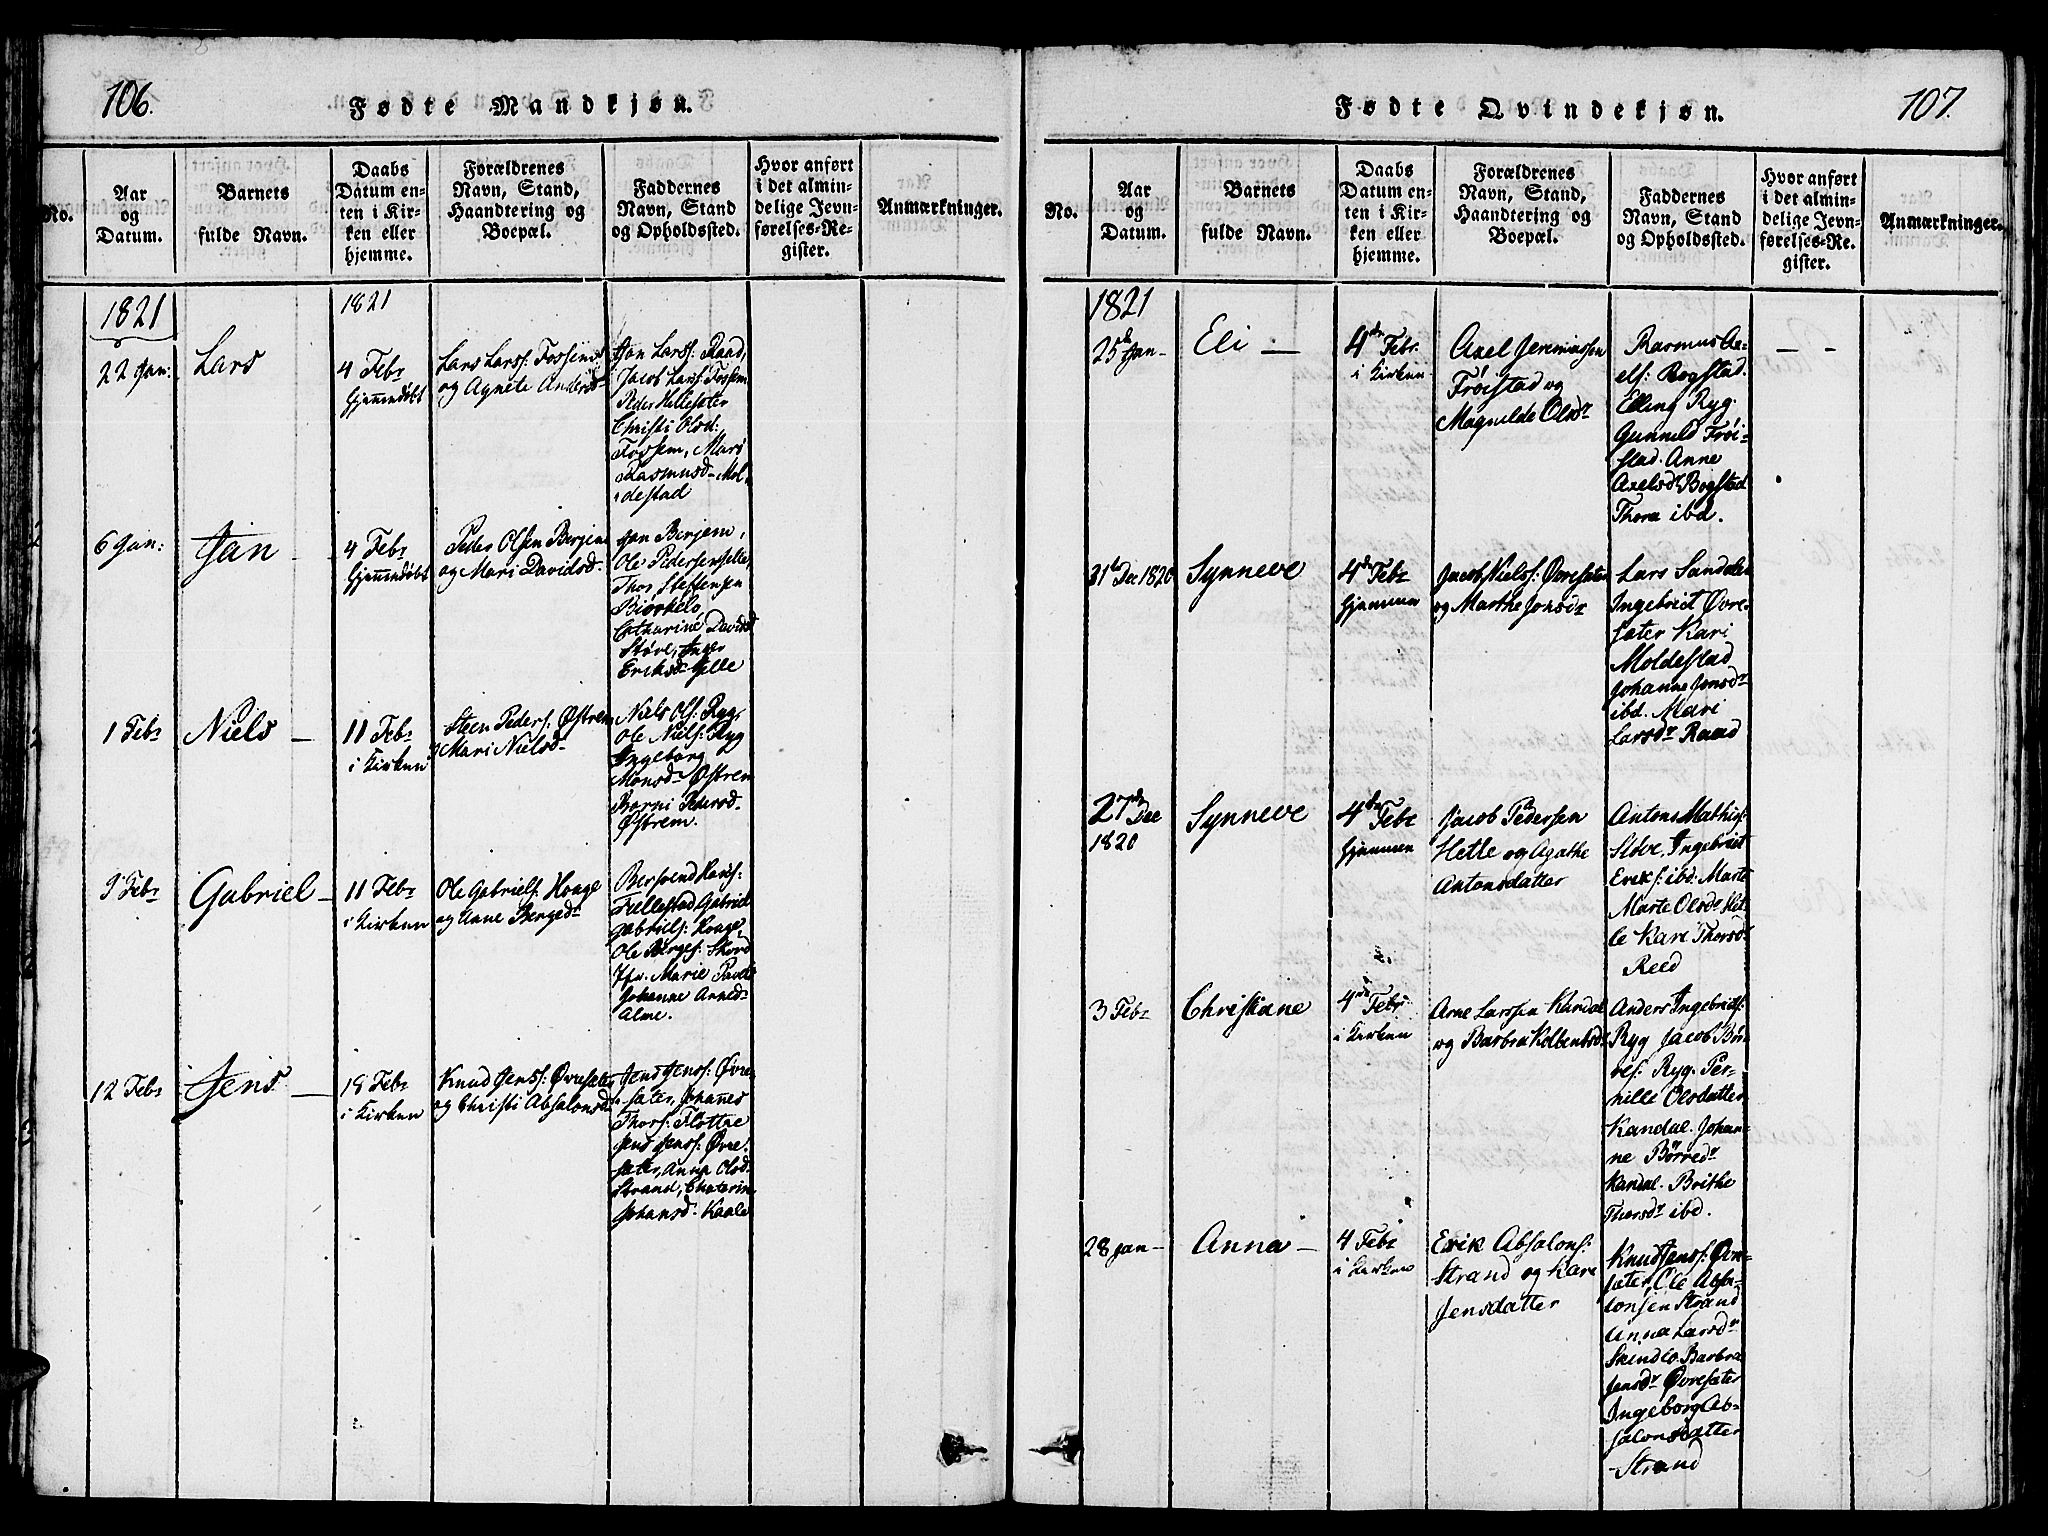 106.
Fødte Mandkjøn.
No.
Aar
og
Datum.
Barnets
fulde Navn.
Daabs
Datum en-
ten i Kir-
ken eller
hjemme.
Forældrenes
Navn, Stand,
Haandtering og
Boepæl.
Faddernes
Navn, Stand
og Opholdssted.
Hvor anført
i det almin-
delige Jevn-
førelses-Re-
gister.
Anmærkninger.
1821
1821
22 Jan:
Lars
4 Febr
Hjemmedøbt
Lars Larss: Fossem
og Agnete Andersd
Jan Larss: Raad,
Jacob Larss: Fossem
Peder Hillesæter
Christi Olsd:
Fossem, Mari
Rasmusd Mol-
destad
6 Jan:
Jan
4 Febr
Hjemmedøbt
Peder Olsen Berjem
og Mari Davidsd
Jan Berjem,
Ole Pedersen Gjelle,
Thor Steffensen
Biørkelo,
Catharine Davidsd
Støve, Inger
Eriksd Gjelle
1 Febr
Niels
11 Febr
i Kirken
Steen Peders: Østrem
og Mari Nielsd
Niels Ols: Ryg,
Ole Niels: Ryg
Ingeborg
Monsd Østrem
Barni Pedersd
Østrem.
9 Febr
Gabriel
11 Febr
i Kirken
Ole Gabriels: Houge
og Anne Berged
Bersvend Hans:
Fellestad Gabriel
Gabriels: Houge,
Ole Berges: Skord
Marie
Johanne Arned
Alme.
12 Febr
Jens
18 Febr
i Kirken
Knud Jenss: Øvresæter
og Christi Absalonsd
Jens Jenss: Øvre-
sæter, Johanes
Thorss: Flottre
Jens Jenss: Øvre-
sæter, Anna Olsd
Strand, Chatarin
Johansd Kaale
107.
Fødte Qvindekjøn.
No.
Aar
og
Datum.
Barnets
fulde Navn.
Daabs
Datum en-
ten i Kir-
ken eller
hjemme.
Forældrenes
Navn, Stand,
Haandtering og
Boepæl.
Faddernes
Navn, Stand
og Opholdssted.
Hvor anført
i det almin-
delige Jevn-
førelses-Re-
gister.
Anmærkninger.
1821
25de Jan
Eli
4de Febr
i Kirken
Axel Jeremiassen
Frøistad og
Magnilde Olsdr
Rasmus Ax-
els: Bogstad.
Elling Ryg.
Gunnild Frøi-
stad. Anne
Axelsd Bogstad
Thora ibd.
31te Dec 1820
Synneve
4de Febr
Hjemmen
Jacob Niels: Øvresæter
og Marthe Jonsdr
Lars Sandal
Ingebrict Øvre-
sæter Kari
Moldestad
Johanne Jonsdr
ibd. Mari
Larsdr Raad
27de Dec
1820
Synneve
4de Febr
Hjemmen
Jacob Pedersen
Hetle og Agathe
Antonsdatter
Antons Mathis:
Støve, Ingebrict
Eriks: ibd. Marte
Marte Olsdr Het-
le Kari Thorsd
Reed
3 Febr
Christiane
4de Febr
i Kirken
Arne Larssen Kandal
og Barbra Kolbensd
Anders Ingebricts:
Ryg Jacob Bør-
res: Ryg. Per-
nille Olsdatter
Kandal. Johan-
ne Børredr
Kandal. Brithe
Thorsdr ibd.
28 Jan
Anna
4 Febr
i Kirken
Erik Absalons:
Strand og Kari
Jensdatter
Knud Jenss: Øvre-
sæter, Ole Absa-
lonsen Strand
Anna Larsdr
Skindlo. Barbra
Jensdr Øvresæter
Ingeborg Ab-
salonsdatter
Strand